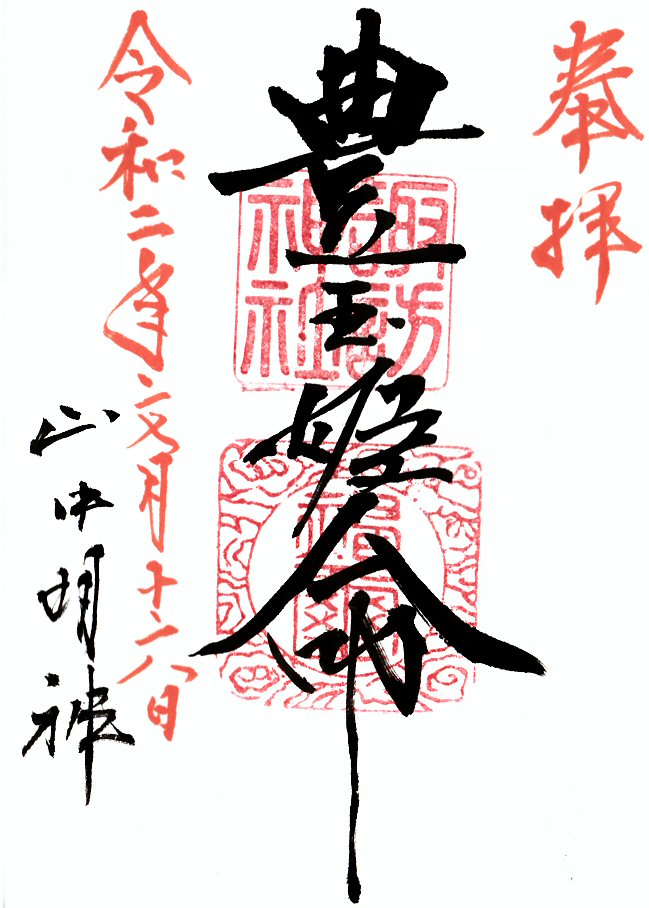 奉拝
豊玉姫命
諏訪
神社
令和二年文月十六日
山中明神